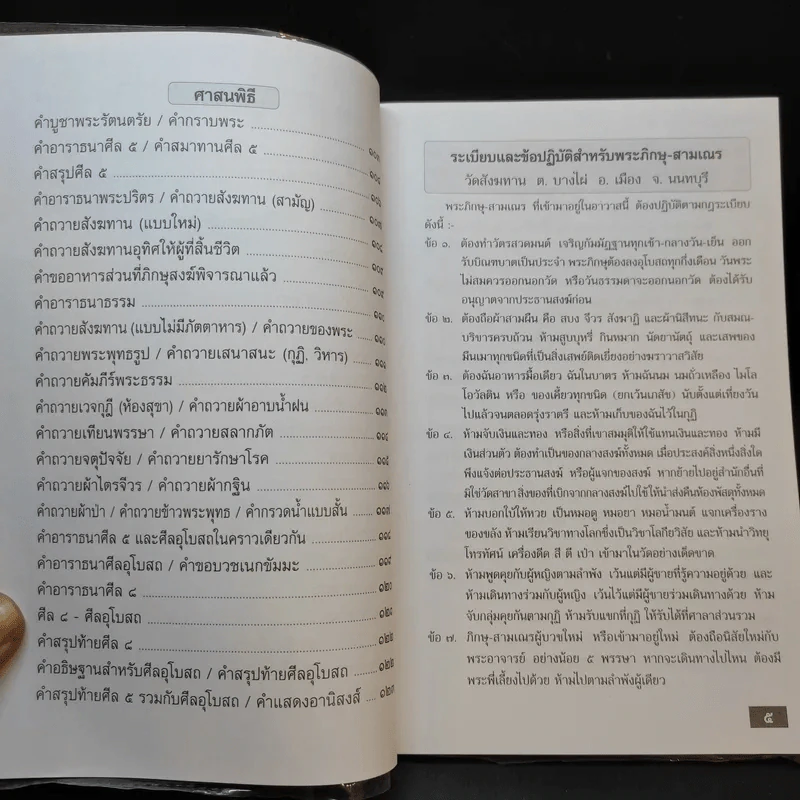 ศาสนพิธี
คำบูชาพระรัตนตรัย / คำกราบพระ
คำอาราธนาศีล ๕ / คำสมาทานศีล ๕
คำสรุปศีล ๕
คำอาราธนาพระปริตร / คำถวายสังฆทาน (สามัญ)
คำถวายสังฆทาน (แบบใหม่)
คำถวายสังฆทานอุทิศให้ผู้ที่สิ้นชีวิต
คำขออาหารส่วนที่ภิกษุสงฆ์พิจารณาแล้ว
คำอาราธนาธรรม
คำถวายสังฆทาน (แบบไม่มีภัตตาหาร) / คำถวายของพระ
คำถวายพระพุทธรูป / คำถวายเสนาสนะ (กุฏิ. วิหาร)
คำถวายคัมภีร์พระธรรม
คำถวายเวจกุฎี (ห้องสุขา) / คำถวายผ้าอาบน้ำฝน
คำถวายเทียนพรรษา / คำถวายสลากภัต
คำถวายจตุปัจจัย / คำถวายยารักษาโรค
คำถวายผ้าไตรจีวร / คำถวายผ้ากฐิน
คำถวายผ้าป่า / คำถวายข้าวพระพุทธ / คำกรวดน้ำแบบสั้น
คำอาราธนาศีล ๕ และศีลอุโบสถในคราวเดียวกัน
คำอาราธนาศีลอุโบสถ / คำขอบวชเนกขัมมะ
คำอาราธนาศีล ๘
ศีล ๘ - ศีลอุโบสถ
คำสรุปท้ายศีล ๘
คำอธิษฐานสำหรับศีลอุโบสถ / คำสรุปท้ายศีลอุโบสถ
คำสรุปท้ายศีล ๕ รวมกับศีลอุโบสถ / คำแสดงอานิสงส์
ระเบียบและข้อปฏิบัติสำหรับพระภิกษุ-สามเณร
วัดสังฆทาน ต. บางไผ่ อ. เมือง จ. นนทบุรี
พระภิกษุ-สามเณร ที่เข้ามาอยู่ในอาวาสนี้ ต้องปฏิบัติตามกฎระเบียบ
ดังนี้ :-
ข้อ ๑. ต้องทำวัตรสวดมนต์ เจริญกัมมัฏฐานทุกเช้า-กลางวัน-เย็น ออก
รับบิณฑบาตเป็นประจำ พระภิกษุต้องลงอุโบสถทุกกึ่งเดือน วันพระ
ไม่สมควรออกนอกวัด หรือวันธรรมดาจะออกนอกวัด ต้องได้รับ
อนุญาตจากประธานสงฆ์ก่อน
ข้อ ๒. ต้องถือผ้าสามผืน คือ สบง จีวร สังฆาฏิ และผ้านิสีทนะ กับสมณ-
บริขารครบถ้วน ห้ามสูบบุหรี่ กินหมาก นัดยานัตถุ์ และเสพของ
มึนเมาทุกชนิดที่เป็นสิ่งเสพย์ติดเยี่ยงอย่างฆราวาสวิสัย
ข้อ ๓. ต้องฉันอาหารมื้อเดียว ฉันในบาตร ห้ามฉันนม นมถั่วเหลือง ไมโล
โอวัลติน หรือ ของเคี้ยวทุกชนิด (ยกเว้นเภสัช) นับตั้งแต่เที่ยงวัน
ไปแล้วจนตลอดรุ่งราตรี และห้ามเก็บของฉันไว้ในกุฏิ
ข้อ ๔. ห้ามจับเงินและทอง หรือสิ่งที่เขาสมมุติให้ใช้แทนเงินและทอง ห้ามมี
เงินส่วนตัว ต้องทำเป็นของกลางสงฆ์ทั้งหมด เมื่อประสงค์สิ่งหนึ่งสิ่งใด
พึงแจ้งต่อประธานสงฆ์ หรือผู้แจกของสงฆ์ หากย้ายไปอยู่สำนักอื่นที่
มิใช่วัดสาขา สิ่งของที่เบิกจากกลางสงฆ์ไปใช้ให้นำส่งคืนห้องพัสดุทั้งหมด
ข้อ ๕. ห้ามบอกใบ้ให้หวย เป็นหมอดู หมอยา หมอน้ำมนต์ แจกเครื่องราง
ของขลัง ห้ามเรียนวิชาทางโลกซึ่งเป็นวิชาโลกียวิสัย และห้ามนำวิทยุ
โทรทัศน์ เครื่องดีด สี ตี เป่า เข้ามาในวัดอย่างเด็ดขาด
ข้อ ๖. ห้ามพูดคุยกับผู้หญิงตามลำพัง เว้นแต่มีผู้ชายที่รู้ความอยู่ด้วย และ
ห้ามเดินทางร่วมกับผู้หญิง เว้นไว้แต่มีผู้ชายร่วมเดินทางด้วย ห้าม
จับกลุ่มคุยกันตามกุฏิ ห้ามรับแขกที่กุฏิ ให้รับได้ที่ศาลาส่วนรวม
ข้อ ๗. ภิกษุ-สามเณรผู้บวชใหม่ หรือเข้ามาอยู่ใหม่ ต้องถือนิสัยใหม่กับ
พระอาจารย์ อย่างน้อย ๕ พรรษา หากจะเดินทางไปไหน ต้องมี
พระพี่เลี้ยงไปด้วย ห้ามไปตามลำพังผู้เดียว
๕